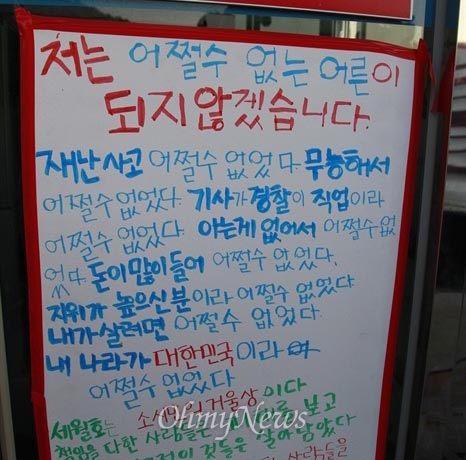 저는 어쩔수 없는 어른이
되지않겠습니다.
재난사고 어쩔수 없었다. 무능해서
어쩔수없었다. 기사가 경찰이 직업이라
어쩔수 없었다. 아는게 없어서 어쩔수없
었다. 돈이 많이들어 어쩔수 없었다.
지위가 높으신분이라 어쩔수 없었다
내가살려면 어쩔수 없었다.
내 나라가 대한민국이라
어쩔수 없었다
세월호는 소시오 거울상이다
책임을 다한 사람들은 보고
것들은 살아남았다
사람들을
OhmyNews